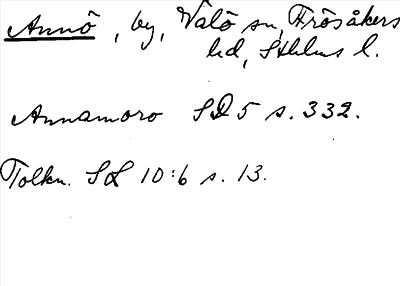 Annö, by, Valö sn, Frösåkers
hd, Sthlms l.
Annamoro SD 5 s. 332.
Tolkn. SL 10:6 s. 13.